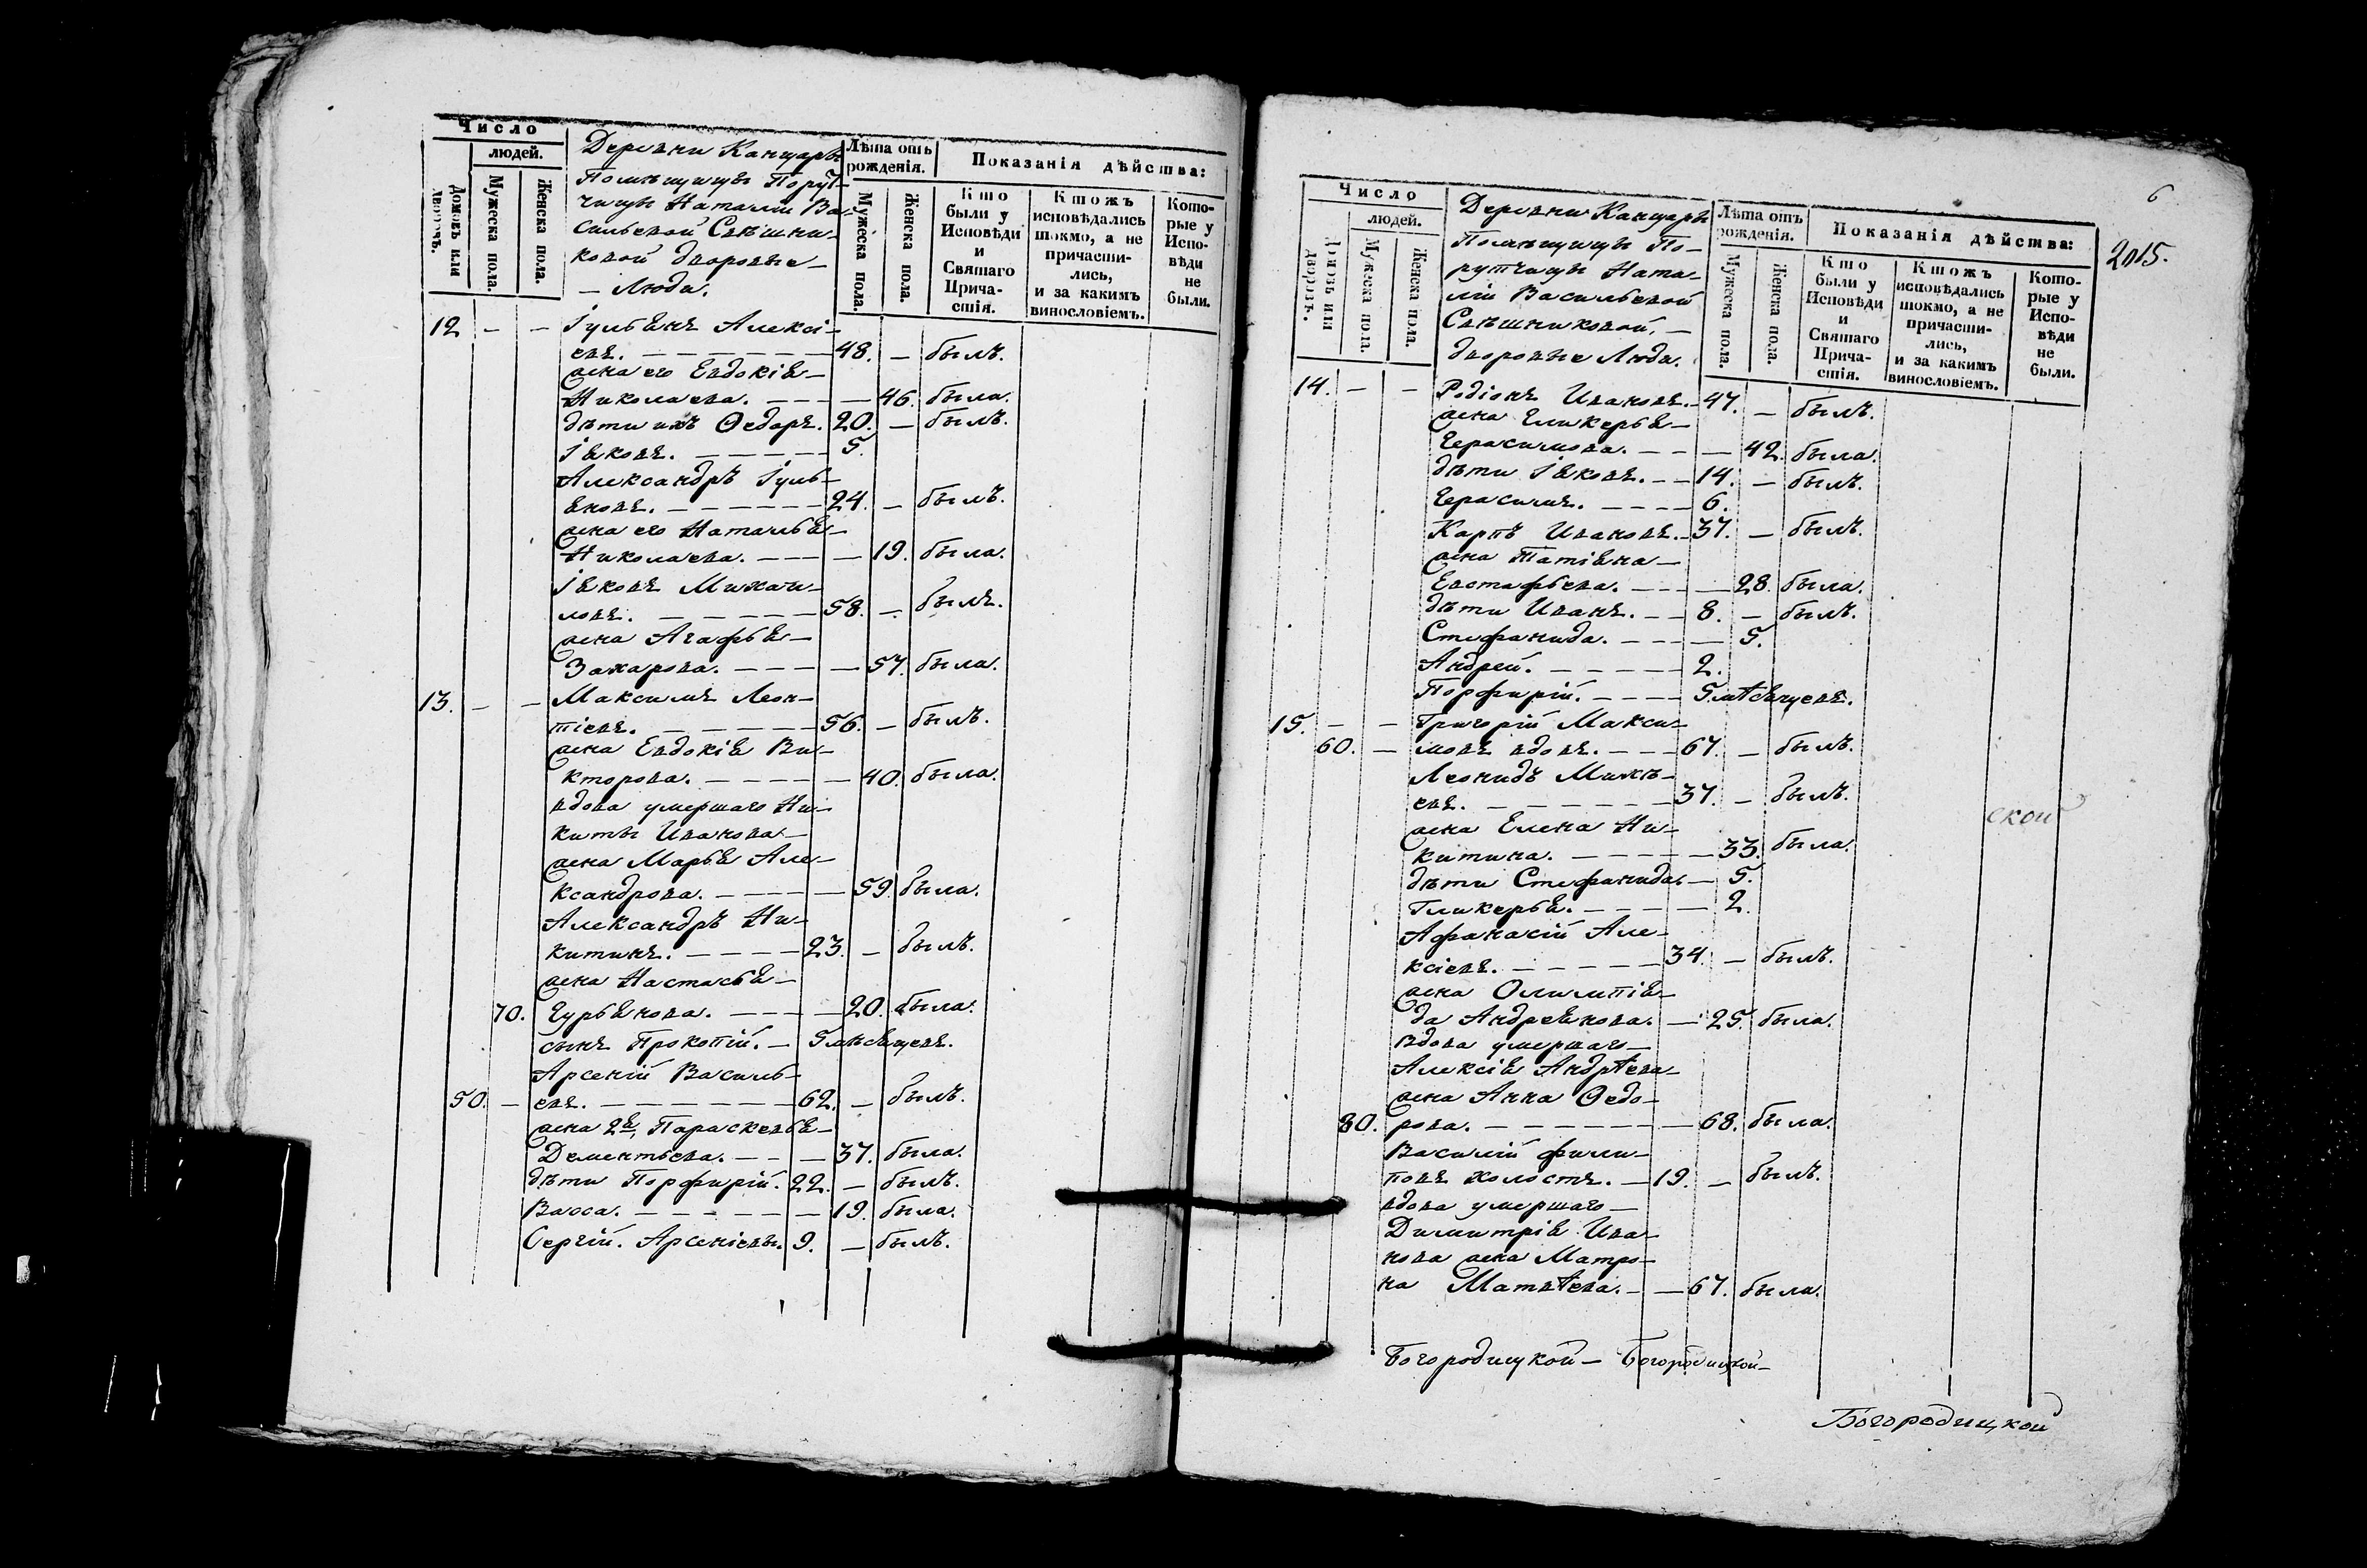 Число
людей.
Домовъ или дворовъ.
Мужеска пола.
Женска пола.
Деревни Канцаръ
Помѣщицы Порут-
чицы Наталіи Ва-
сильевой Свѣшни-
ковой дворовые
Люди.
Лѣта отъ
рожденія.
Мужеска пола.
Женска пола.
Показанія дѣйства:
Кто
были у
Исповѣди
и
Святаго
Прича-
стія.
Ктожъ
исповѣдались
токмо, а не
причасти-
лись,
и за какимъ
винословіемъ.
Кото-
рые у
Испо-
вѣди
не
были.
12 — — Іульянъ Алексі-
евъ. 48. — былъ.
жена его Евдокія
Николаева. — 46. была.
дѣти ихъ Ѳедоръ. 20. — былъ.
Іяковъ. 5.
Александръ Іуль-
яновъ. 24. — былъ.
жена его Наталья
Николаева. — 19. была.
Іяковъ Михаи-
ловъ. 58. — былъ.
жена Агафья
Захарова. — 57. была.
13. — — Максимъ Леон-
тіевъ. 56. — былъ.
жена Евдокія Ви-
кторова. — 40. была.
вдова умершаго Ни-
киты Иванова
жена Марья Але-
ксандрова. — 59. была.
Александръ Ни-
китинъ. 23. — былъ.
жена Настасья
70. Гурьянова. — 20. была.
сынъ Прокопій. — 5 мѣсяцевъ.
Арсеній Василь-
50. — евъ. 62. — былъ.
жена 2я, Параскевья
Дементьева. — 37. была.
дѣти Порфирій. 22. — былъ.
Васса. — 19. была.
Сергій. Арсеніевы. 9. — былъ.
6
2015.
Число
людей.
Домовъ или дворовъ.
Мужеска пола.
Женска пола.
Деревни Канцаръ
Помѣщицы По-
рутчицы Ната-
ліи Васильевой
Свѣшниковой,
дворовые Люди.
Лѣта отъ
рожденія.
Мужеска пола.
Женска пола.
Показанія дѣйства:
Кто
были у
Исповѣди
и
Святаго
Прича-
стія.
Ктожъ
исповѣдались
токмо, а не
причасти-
лись,
и за какимъ
винословіемъ.
Кото-
рые у
Испо-
вѣди
не
были.
14. — — Родіонъ Ивановъ. 47. — былъ.
жена Гликерья
Герасимова. — 42. была.
дѣти Іяковъ. 14. — былъ.
Герасимъ. 6.
Карпъ Ивановъ. 37. — былъ.
жена Татіяна
Евстафьева. — 28. была.
дѣти Иванъ. 8. — былъ.
Стефанида. — 5.
Андрей. 2.
Порфирій. 5 мѣсяцевъ.
15. — — Григорій Макси-
60. — мовъ вдовъ. 67. — былъ.
Леонидъ Михѣ-
евъ. 37. — былъ.
жена Елена Ни-
китина. — 33. была.
дѣти Стефанида. — 5.
Гликерья. — 2.
Афанасій Але-
ксіевъ. 34. — былъ.
жена Олимпія-
да Андреянова. — 25. была.
вдова умершаго
Алексія Андрѣева
жена Анна Ѳедо-
80. рова. — 68. была.
Василій Фили-
повъ холостъ. 19. — былъ.
вдова умершаго
Димитрія Ива-
нова жена Матро-
на Матвѣева. — 67. была.
ской
Богородицкой — Богородицкой
Богородицкой